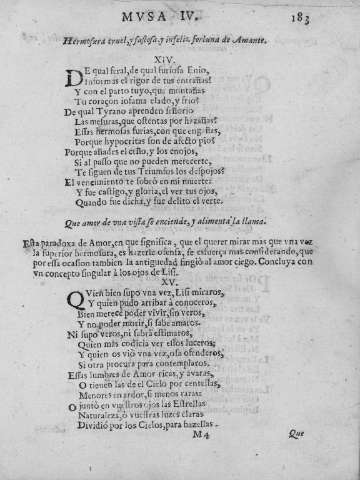 MVSA IV. 183
Hermosura cruel, y fastosa, y infeliz fortuna de Amante.
XIV.
DE qual feral, de qual furiosa Enio,
Informas el rigor de tus entrañas?
Y con el parto tuyo, que montañas
Tu coraçon infama elado, y frio?
De qual Tyrano aprenden señorio
Las mesuras, que ostentas por hazañas?
Essas hermosas furias, con que engañas,
Porque hypocritas son de afecto pio?
Porque añades el ceño, y los enojos,
Si al passo que no pueden merecerte,
Te siguen de tus Triumfos los despojos?
El vencimiento te sobrò en mi muerte:
Y fue castigo, y gloria, el ver tus ojos,
Quando fue dicha, y fue delito el verte.
Que amor de vna vista se enciende, y alimenta la llama.
Esta paradoxa de Amor, en que significa, que el querer mirar mas que vna vez
la superior hermosura, es hazerle ofensa, se esfuerça mas considerando, que
por essa ocasion tambien la antiguedad fingiò al amor ciego. Concluya con
vn concepto singular à los ojos de Lisi.
XV.
QVien bien supo vna vez, Lisi miraros,
Y quien pudo arribar à conoceros,
Bien merece poder vivir, sin veros,
Y no poder morir, si sabe amaros.
Ni supo veros, ni sabrà estimaros,
Quien mas codicia ver essos luceros;
Y quien os viò vna vez, osa ofenderos,
Si otra procura para contemplaros.
Essas lumbres de Amor ricas, y avaras,
O tienen las de el Cielo por centellas,
Menores en ardor, si menos raras:
O juntò en vuestros ojos las Estrellas
Naturaleza, ò vuestras luzes claras
Dividiò por los Cielos, para hazellas.
M4 Que